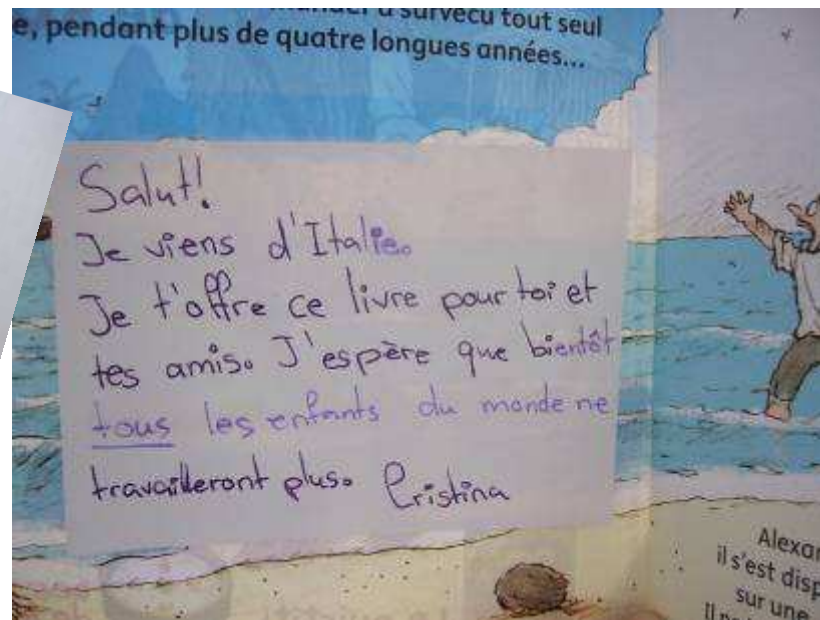 a survécu tout seul
e, pendant plus de quatre longues années...
Salut!
Je viens d'Italie.
Je t'offre ce livre pour toi et
tes amis. J'espère que bientôt
tous les enfants du monde ne
travailleront plus. Cristina
Alexan
il s'est disp
sur une